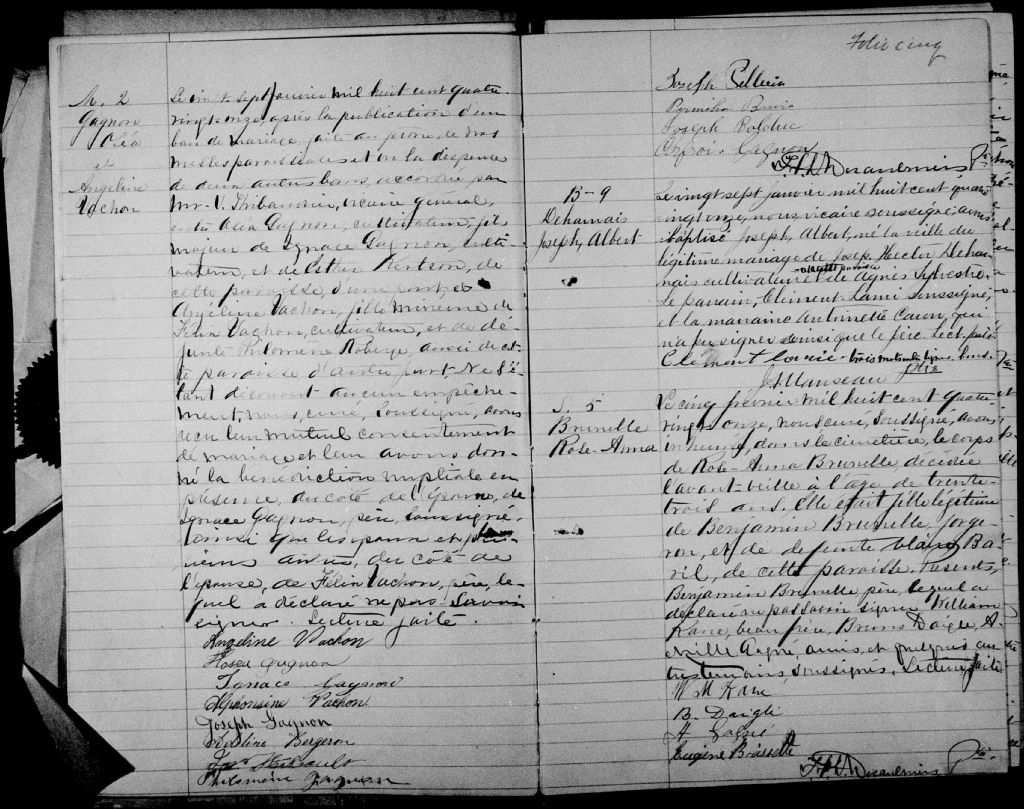 M. 2
Gagnon
Oséa
et
Angeline
Vachon
Le vingt sept janvier mil huit cent quatre
vingt onze, après la publication d'un
ban de mariage, faite au prône de nos
messes paroissiales et vu la dispense
de deux autres bans, accordée par
Mr. V. Thibaudier, vicaire général,
entre Oséa Gagnon, cultivateur, fils
majeur de Ignace Gagnon, culti-
vateur, et de Esther Kertson, de
cette paroisse, d'une part, et
Angeline Vachon, fille mineure de
Félix Vachon, cultivateur, et de dé-
funte Philomène Roberge, aussi de cet-
te paroisse d'autre part. Ne s'é-
tant découvert aucun empêche-
ment, nous, curé, soussigné, avons
reçu leur mutuel consentement
de mariage et leur avons don-
né la bénédiction nuptiale en
présence, du côté de l'époux, de
Ignace Gagnon, père, soussigné,
ainsi que les époux et plu-
sieurs amis, du côté de
l'épouse, de Félix Vachon, père, le-
quel a déclaré ne pas savoir
signer. Lecture faite.
Angeline Vachon
Hosea Gagnon
Ignace Gagnon
Alphonsine Vachon
Joseph Gagnon
Bergeron
Philomène Gagnon
Folio cinq
Joseph Pellerin
Joseph
Gagnon
F. L. Desaulniers Ptre
B-9
Deharnais
Joseph, Albert
Le vingt sept janvier mil huit cent quatre
vingt onze, nous, vicaire soussigné, avons
baptisé Joseph, Albert, né la veille du
légitime mariage de Joseph Hector Dehar-
nais cultivateur et de Agnès Sylvestre
de cette paroisse
le parrain, Clément Lanié soussigné,
et la marraine Antoinette Caron, qui
n'a pu signer ainsi que le père. Lect. faite
Clément Lanié trois mots
J. Manseau Ptre
S. 5
Brunelle
Rose-Anna
Le cinq février mil huit cent quatre
vingt onze, nous curé, soussigné, avons
inhumé, dans le cimetière, le corps
de Rose-Anna Brunelle décédée
l'avant-veille à l'âge de trente-
trois ans. Elle était fille légitime
de Benjamin Brunelle, forge-
ron, et de defunte Ba-
ril, de cette paroisse. Présents,
Benjamin Brunelle père lequel a
déclaré ne pas savoir signer, William
Kane, beau frère, Bruno Daigle, A-
amis, et quelques au-
tres témoins, soussignés. Lecture faite
W M Kane
B. Daigle
Eugène Brassette
F. L. Desaulniers Ptre